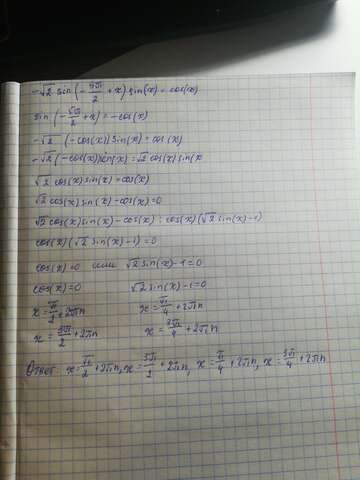 -√2 sin(-5π/2 + x) sin(x) = cos(x)
sin(-5π/2 + x) = -cos(x)
-√2 (-cos(x)) sin(x) = cos(x)
-√2 (-cos(x)) sin(x) = √2 cos(x) sin(x
√2 cos(x) sin(x) = cos(x)
√2 cos(x) sin(x) - cos(x) = 0
√2 cos(x) sin(x) - cos(x) : cos(x) (√2 sin(x) - 1)
cos(x) (√2 sin(x) - 1) = 0
cos(x) = 0 или √2 sin(x) - 1 = 0
cos(x) = 0 √2 sin(x) - 1 = 0
x = π/2 + 2πn x = π/4 + 2πn
x = 3π/2 + 2πn x = 3π/4 + 2πn
Ответ: x = π/2 + 2πn, x = 3π/2 + 2πn, x = π/4 + 2πn, x = 3π/4 + 2πn